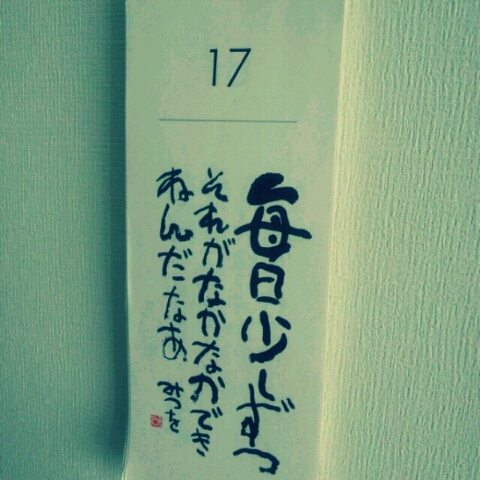 17
毎日少しずつ
それがなかなかでき
ねんだなあ
みつを